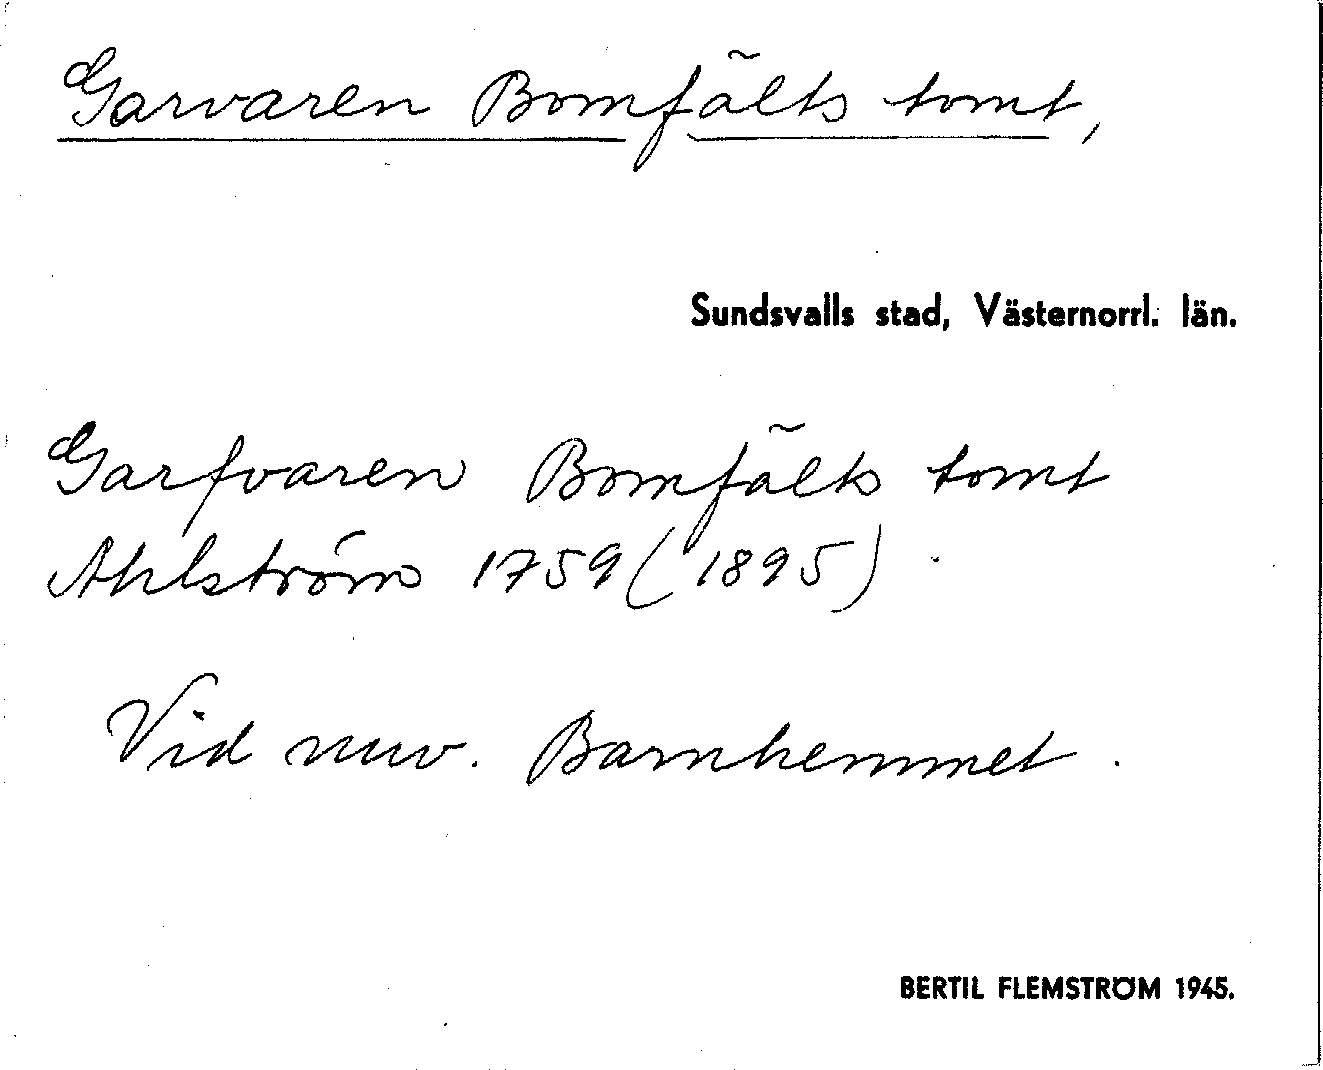 Garvaren Bomfälts tomt,
Sundsvalls stad, Västernorrl. län.
Garfvaren Bomfälts tomt
Ahlström 1759 (1895).
Vid nuv. Barnhemmet.
BERTIL FLEMSTRÖM 1945.